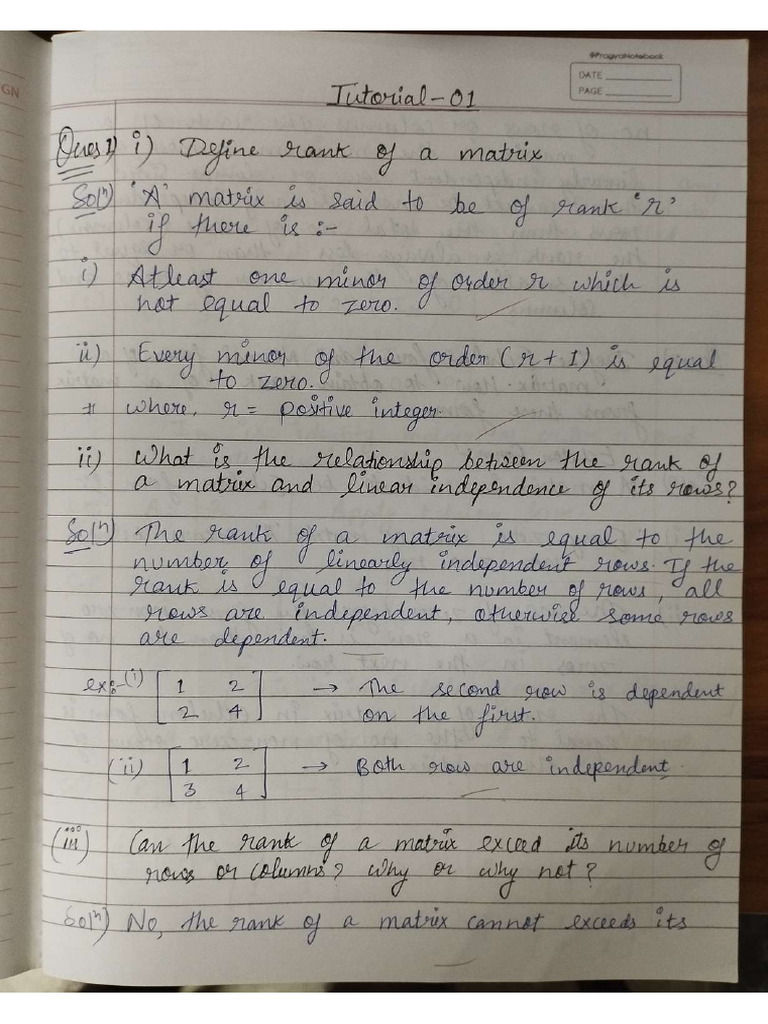 GN
#PragyaNotebook
DATE
PAGE
Tutorial-01
Ques 1) i) Define rank of a matrix
Solⁿ) 'A' matrix is said to be of rank 'r'
if there is :-
i) Atleast one minor of order r which is
not equal to zero.
ii) Every minor of the order (r+1) is equal
to zero.
# where, r = positive integer.
ii) What is the relationship between the rank of
a matrix and linear independence of its rows?
Solⁿ) The rank of a matrix is equal to the
number of linearly independent rows. If the
rank is equal to the number of rows, all
rows are independent, otherwise some rows
are dependent.
ex:-(i) [1 2 → The second row is dependent
2 4] on the first.
(ii) [1 2 → Both row are independent.
3 4]
(iii) Can the rank of a matrix exceed its number of
rows or columns? Why or why not?
Solⁿ) No, the rank of a matrix cannot exceeds its